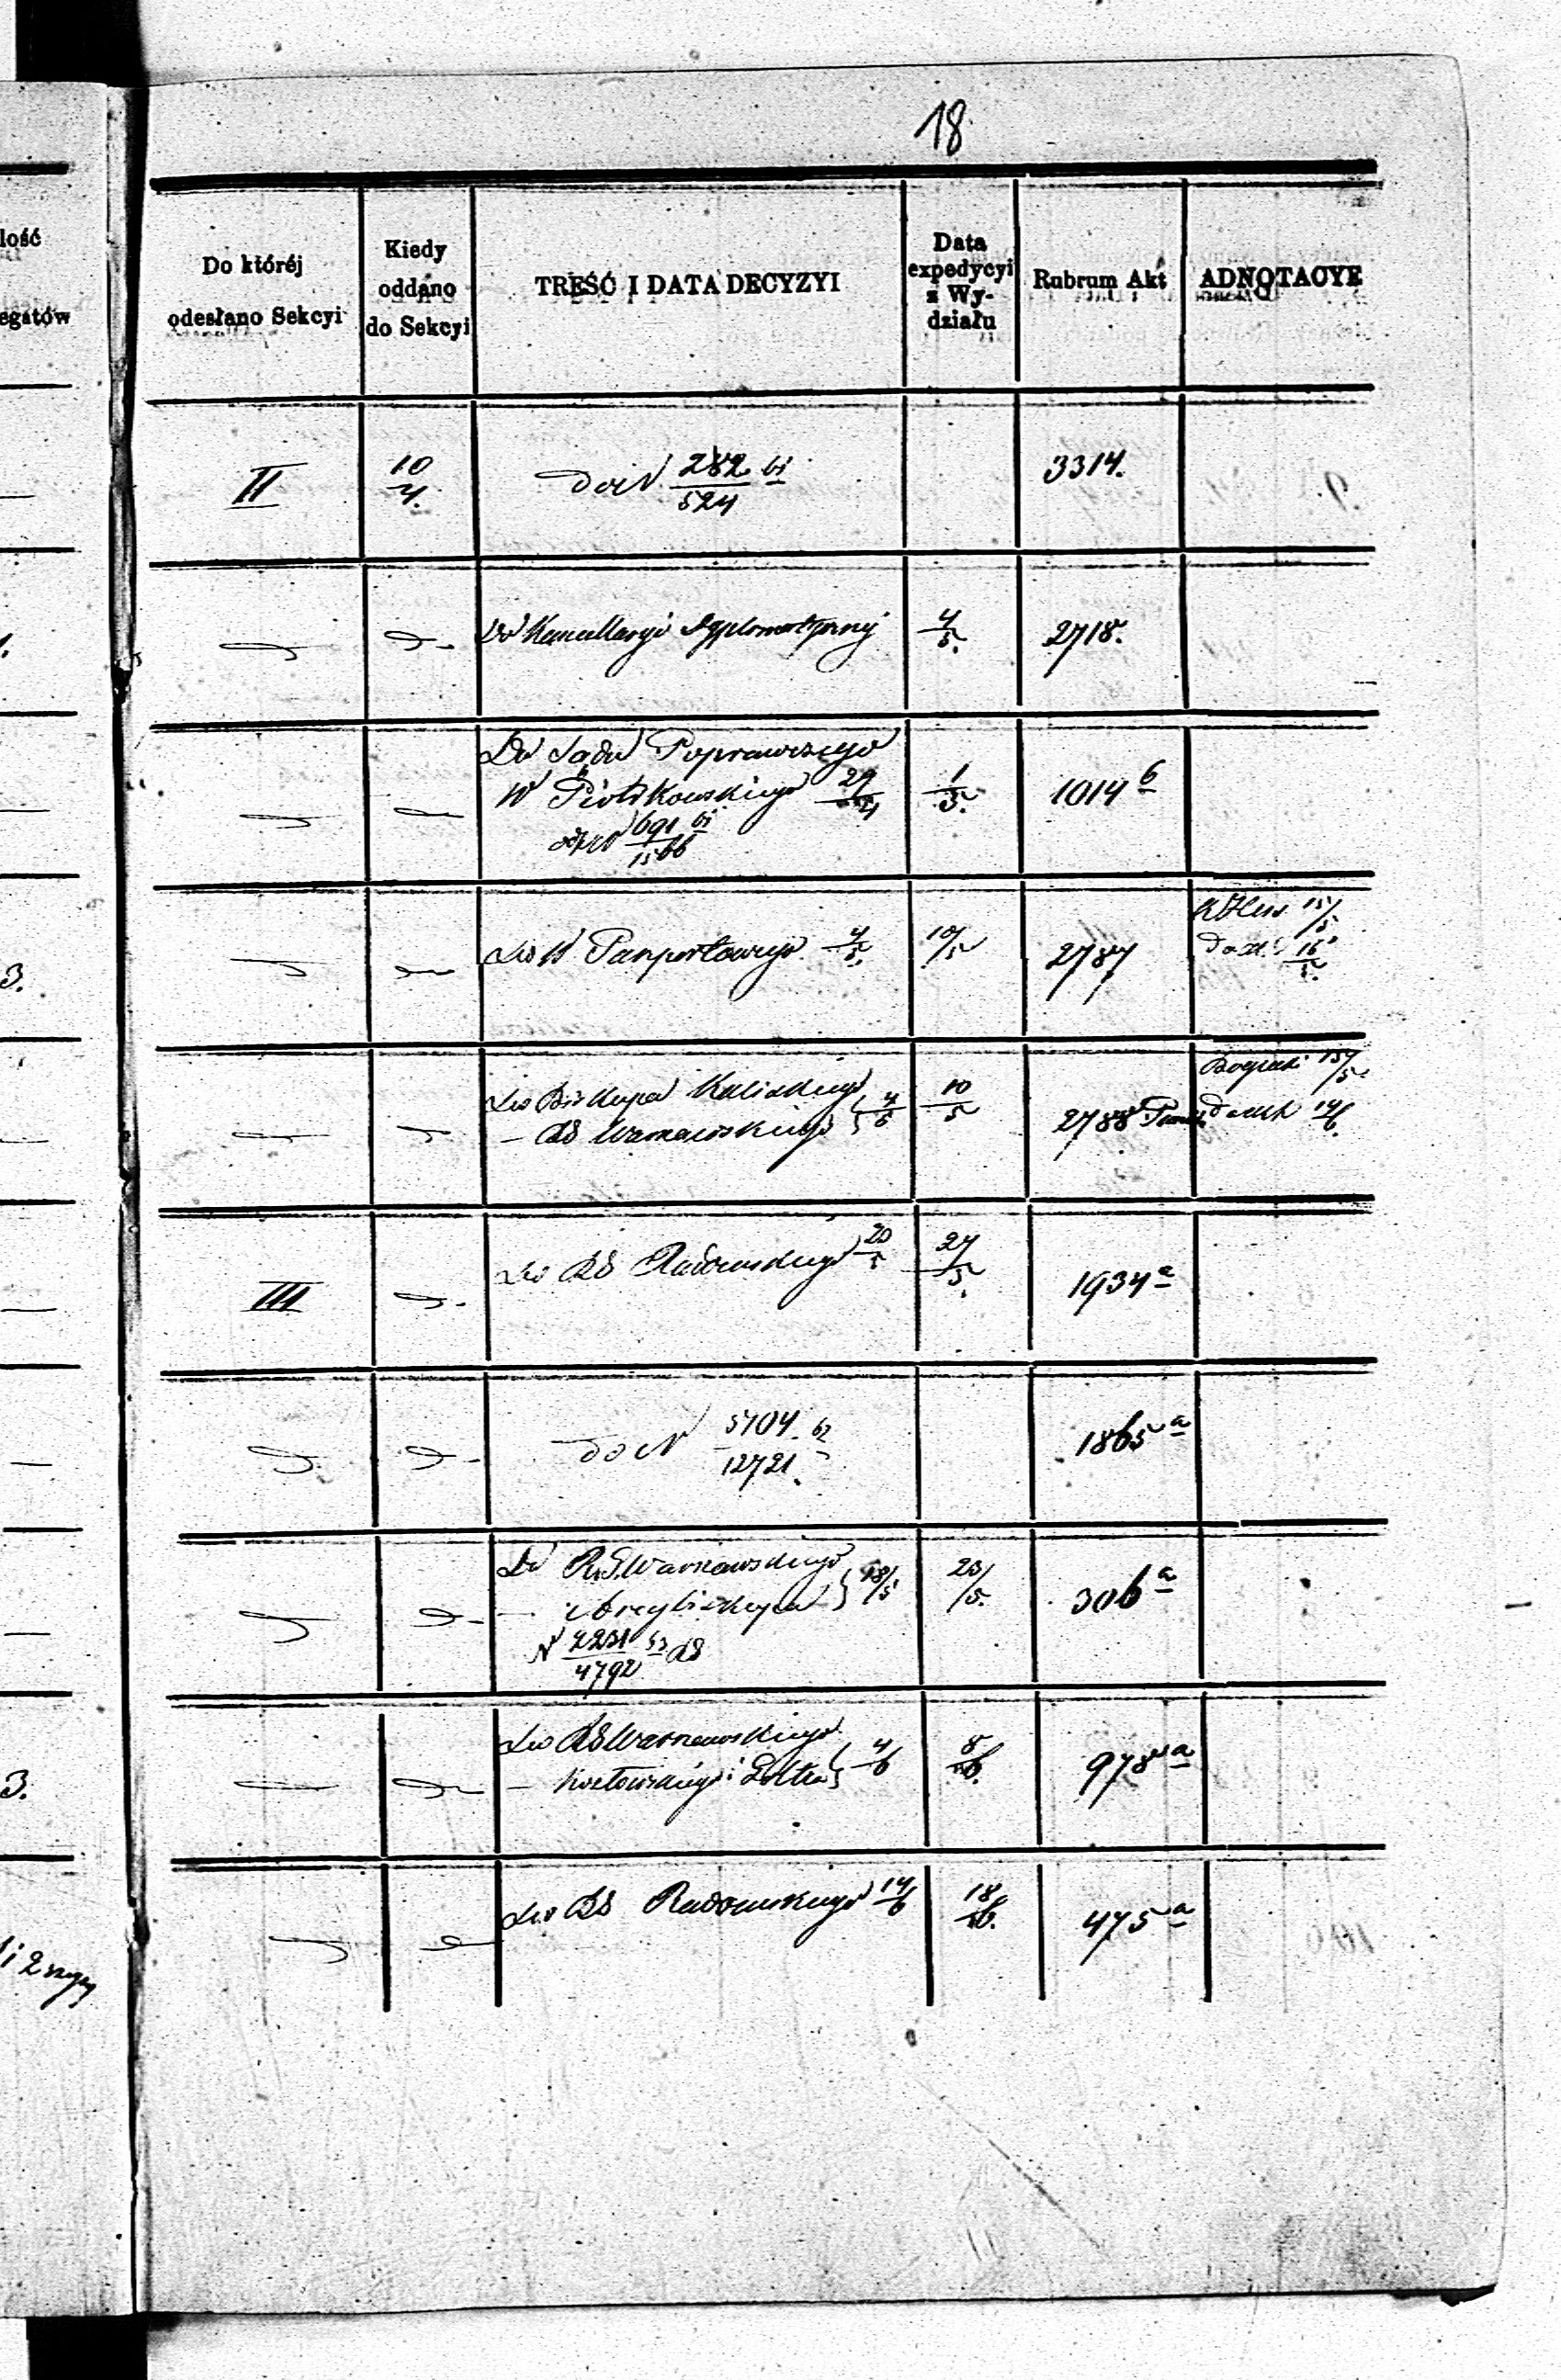 18
lość
egatów
Do któréj
odesłano Sekcyi
Kiedy
oddano
do Sekcyi
TREŚĆ I DATA DECYZYI
Data
expedycyi
z Wy-
działu
Rubrum Akt
ADNOTACYE
II
10/4.
do N 282/524
3314.
Do Kancellaryi Dyplomatycznej
4/5.
2718.
Do Sądu Poprawczego
W Piotrkowskiego 29/4
N 691/1566
1/5.
1014 b
3.
Do W Paszportowego 4/5.
10/5
2787
15/5
16/5.
Do Biskupa Kaliskiego
— RG Warszawskiego } 4/5
10/5
2788
15/5
14/6.
III
Do RG Radomskiego 20/5
27/5.
1934 a
do N 5704/12721.
1865 a
Do R.G. Warszawskiego
— Arcybiskupa } 18/5
N 2231/4792 RG
23/5.
306 a
3.
Do RG Warszawskiego
4/6
8/6.
978 a
Do RG Radomskiego 14/6
18/6.
475 a
i 2